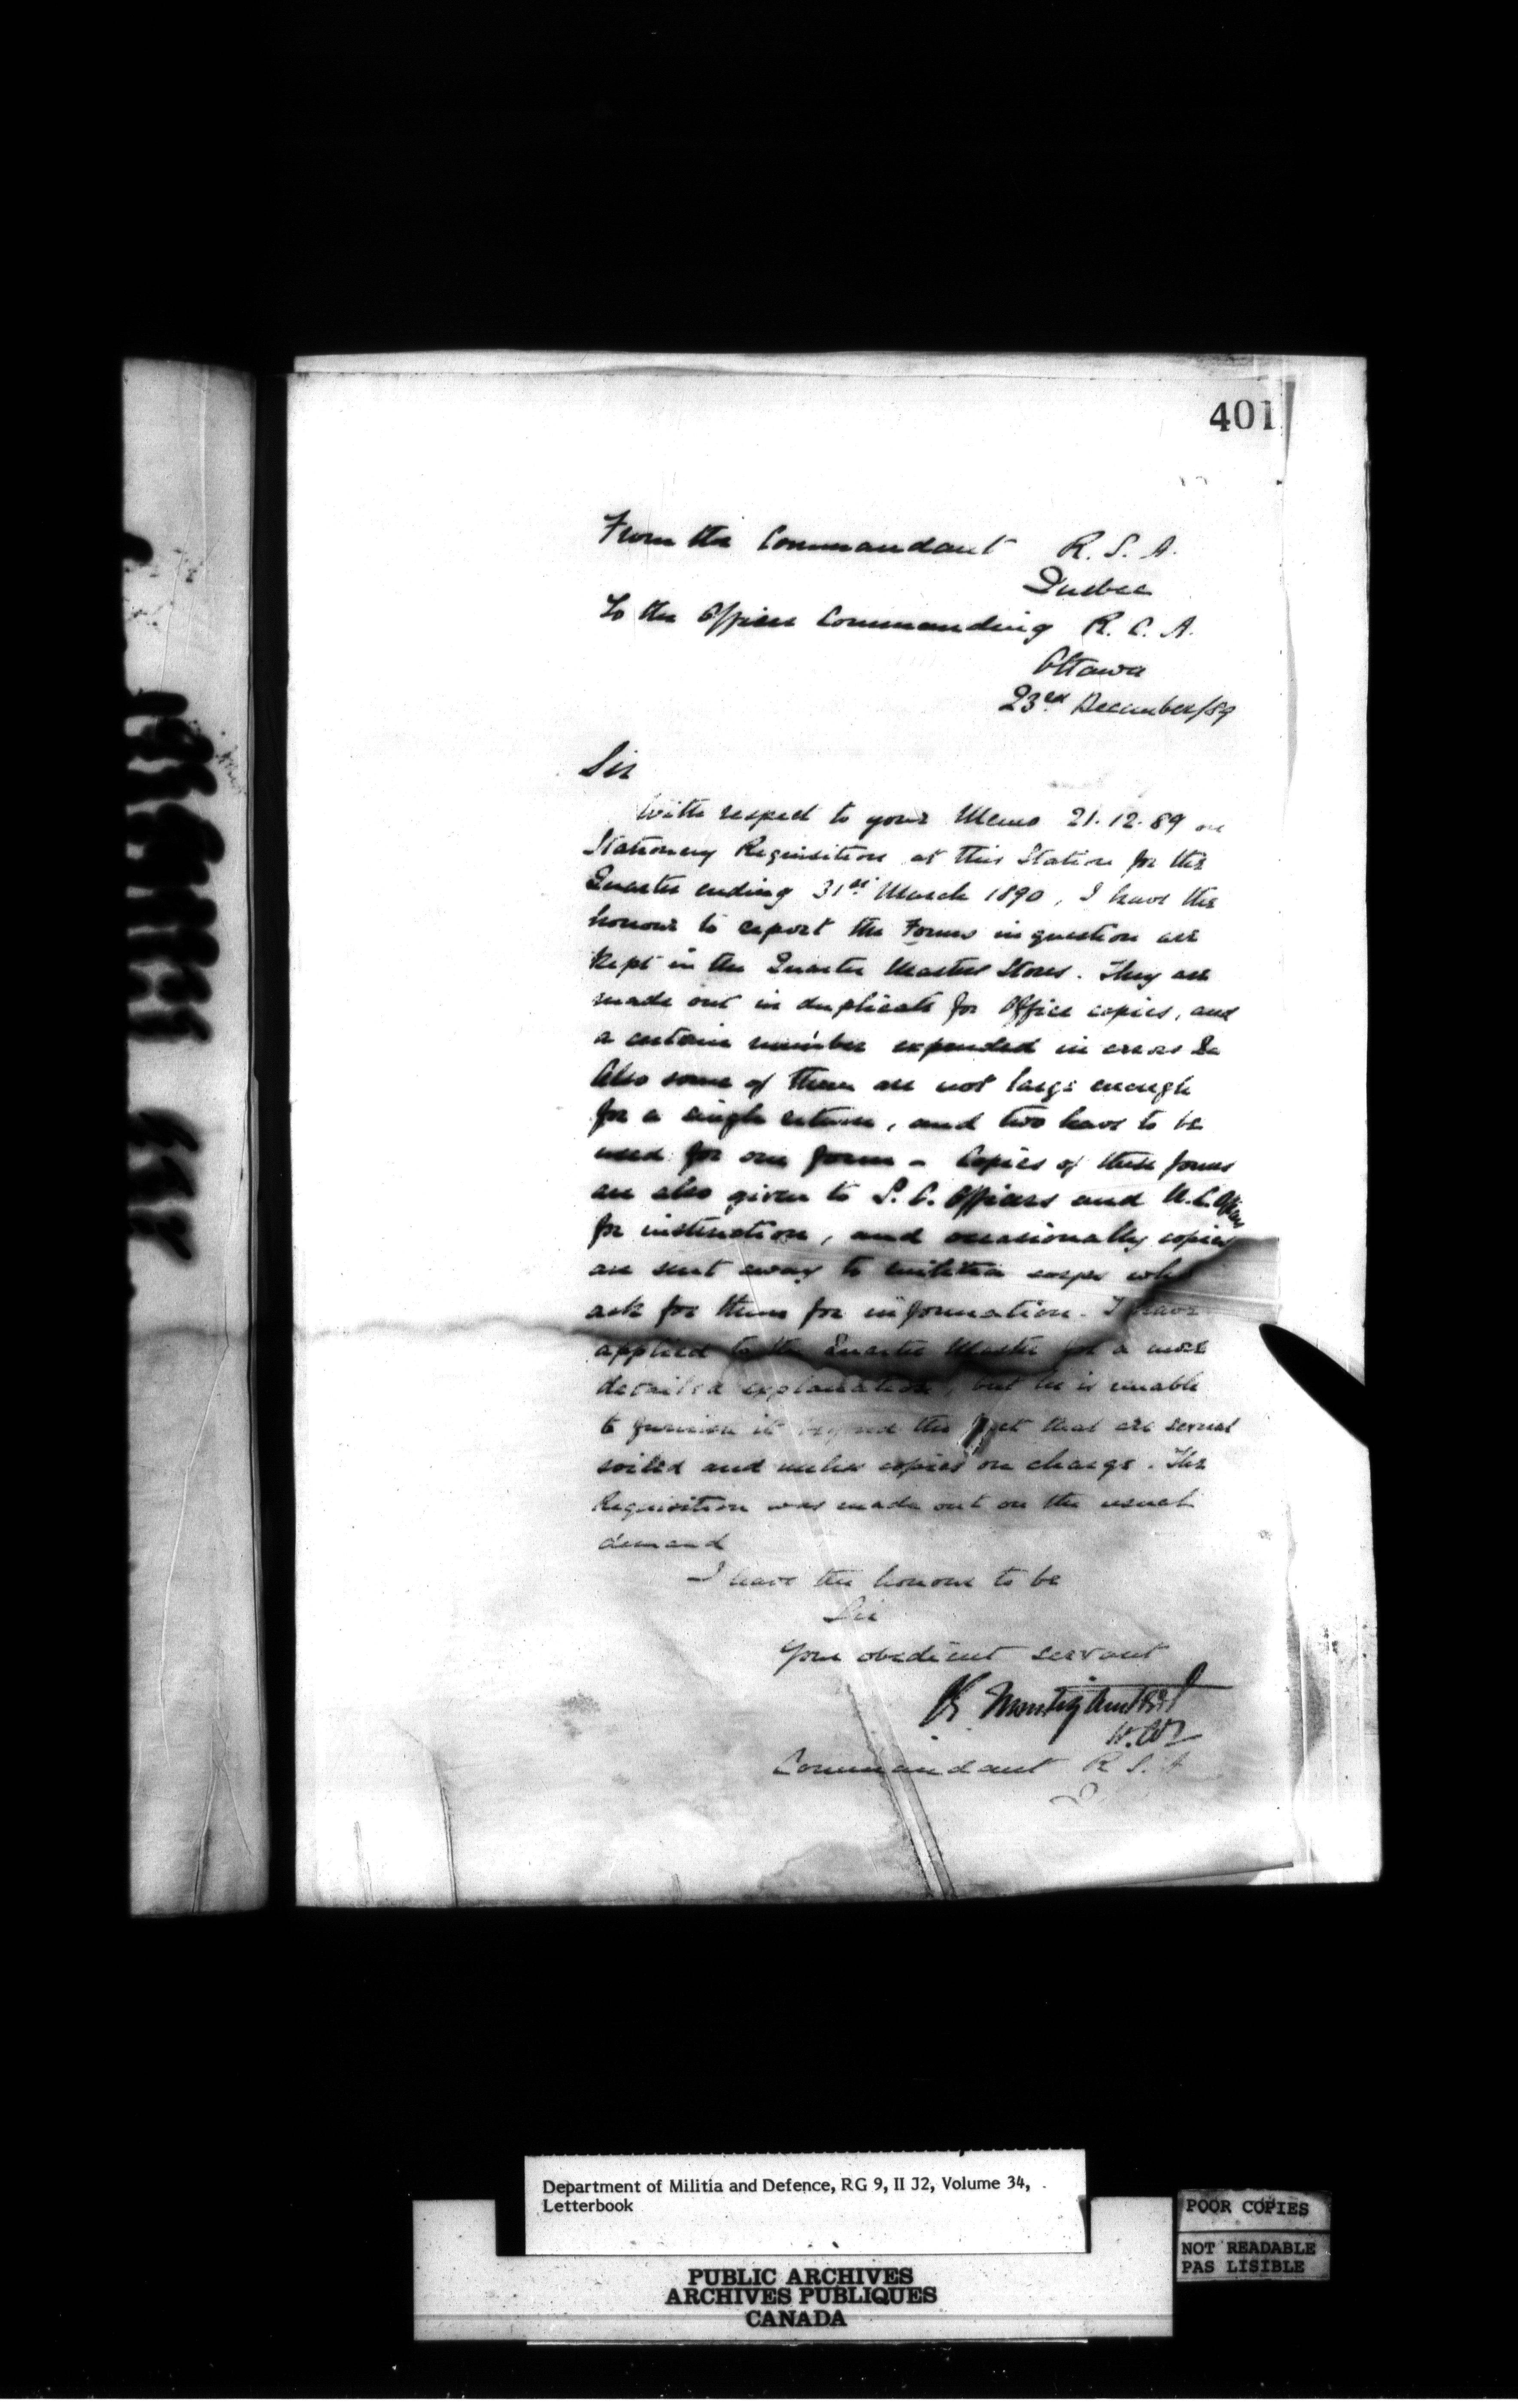 401
From the Commandant R. S. A.
Quebec
To the Officer Commanding R. C. A.
Ottawa
23rd December/89
Sir
With respect to your Memo 21.12.89 on
Stationery Requisition at this Station for the
Quarter ending 31st March 1890, I have the
honour to report the Forms in question are
Kept in the Quarter Masters Stores. They are
made out in duplicate for Office copies, and
a certain number expended in errors &c
Also some of them are not large enough
for a single return, and two have to be
used for one form - Copies of these forms
are also given to S. C. Officers and N.C. Officers
for instruction, and occasionally copies
are sent away to militia corps who
ask for them for information. I have
applied to the Quarter Master for a more
detailed explanation, but he is unable
to furnish it beyond the fact that are several
soiled and useless copies on charge. The
Requisition was made out on the usual
demand
I have the honour to be
Sir
Your obedient servant
Commandant R. S. A
Department of Militia and Defence, RG 9, II J2, Volume 34,
Letterbook
PUBLIC ARCHIVES
ARCHIVES PUBLIQUES
CANADA
POOR COPIES
NOT READABLE
PAS LISIBLE